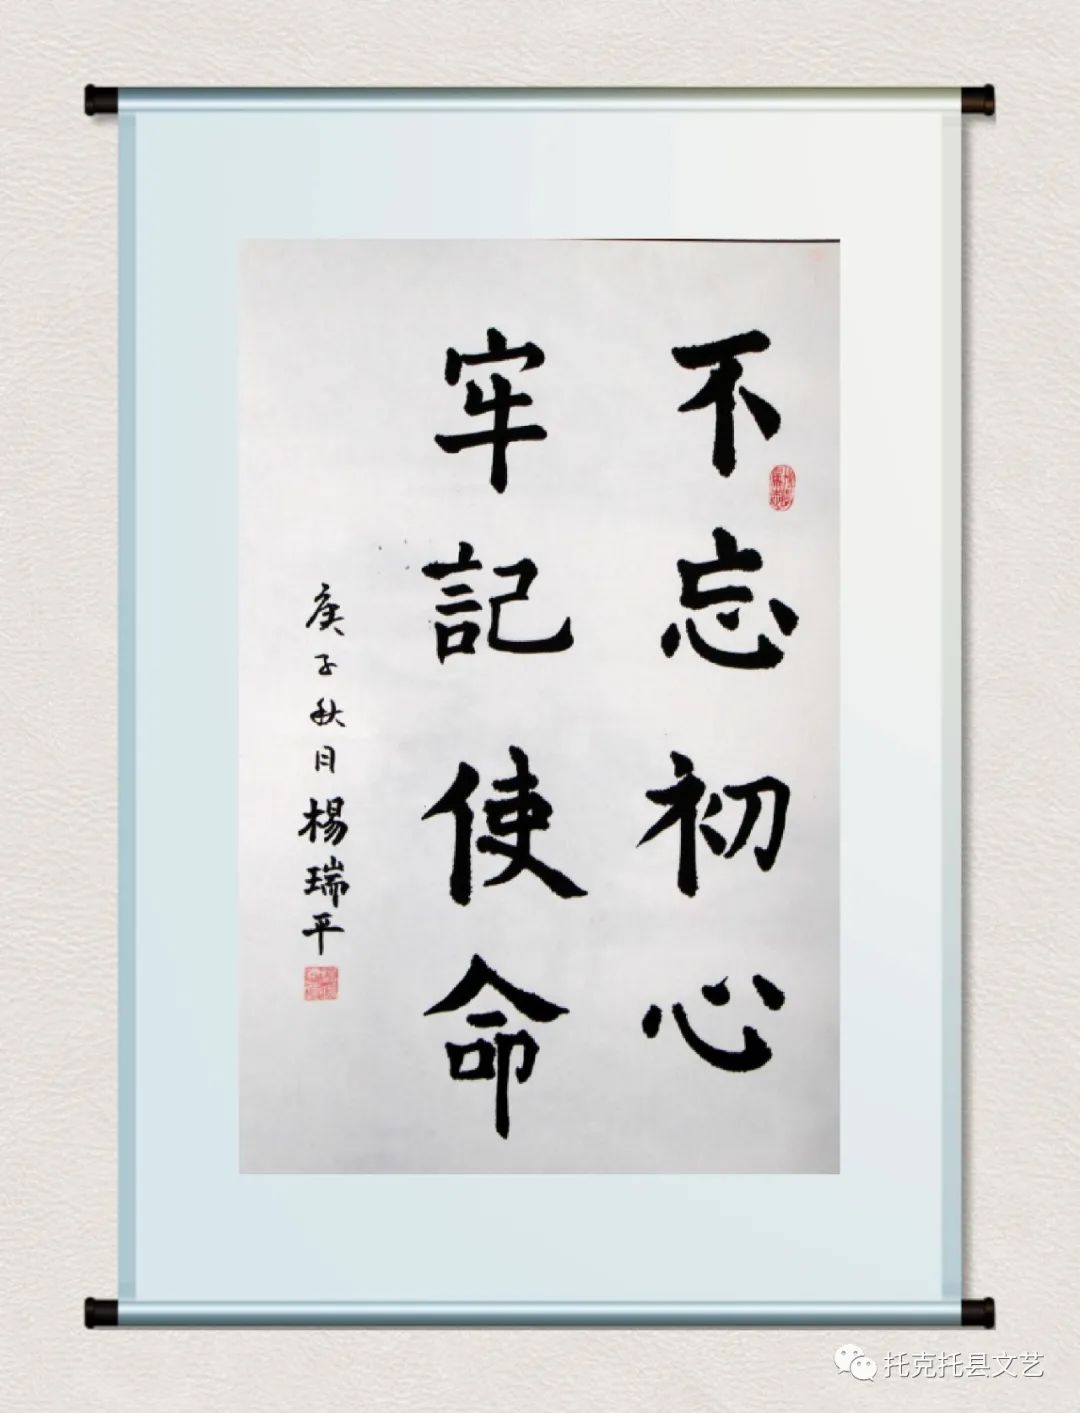 不忘初心
牢記使命
庚子秋月楊瑞平
托克托县文艺